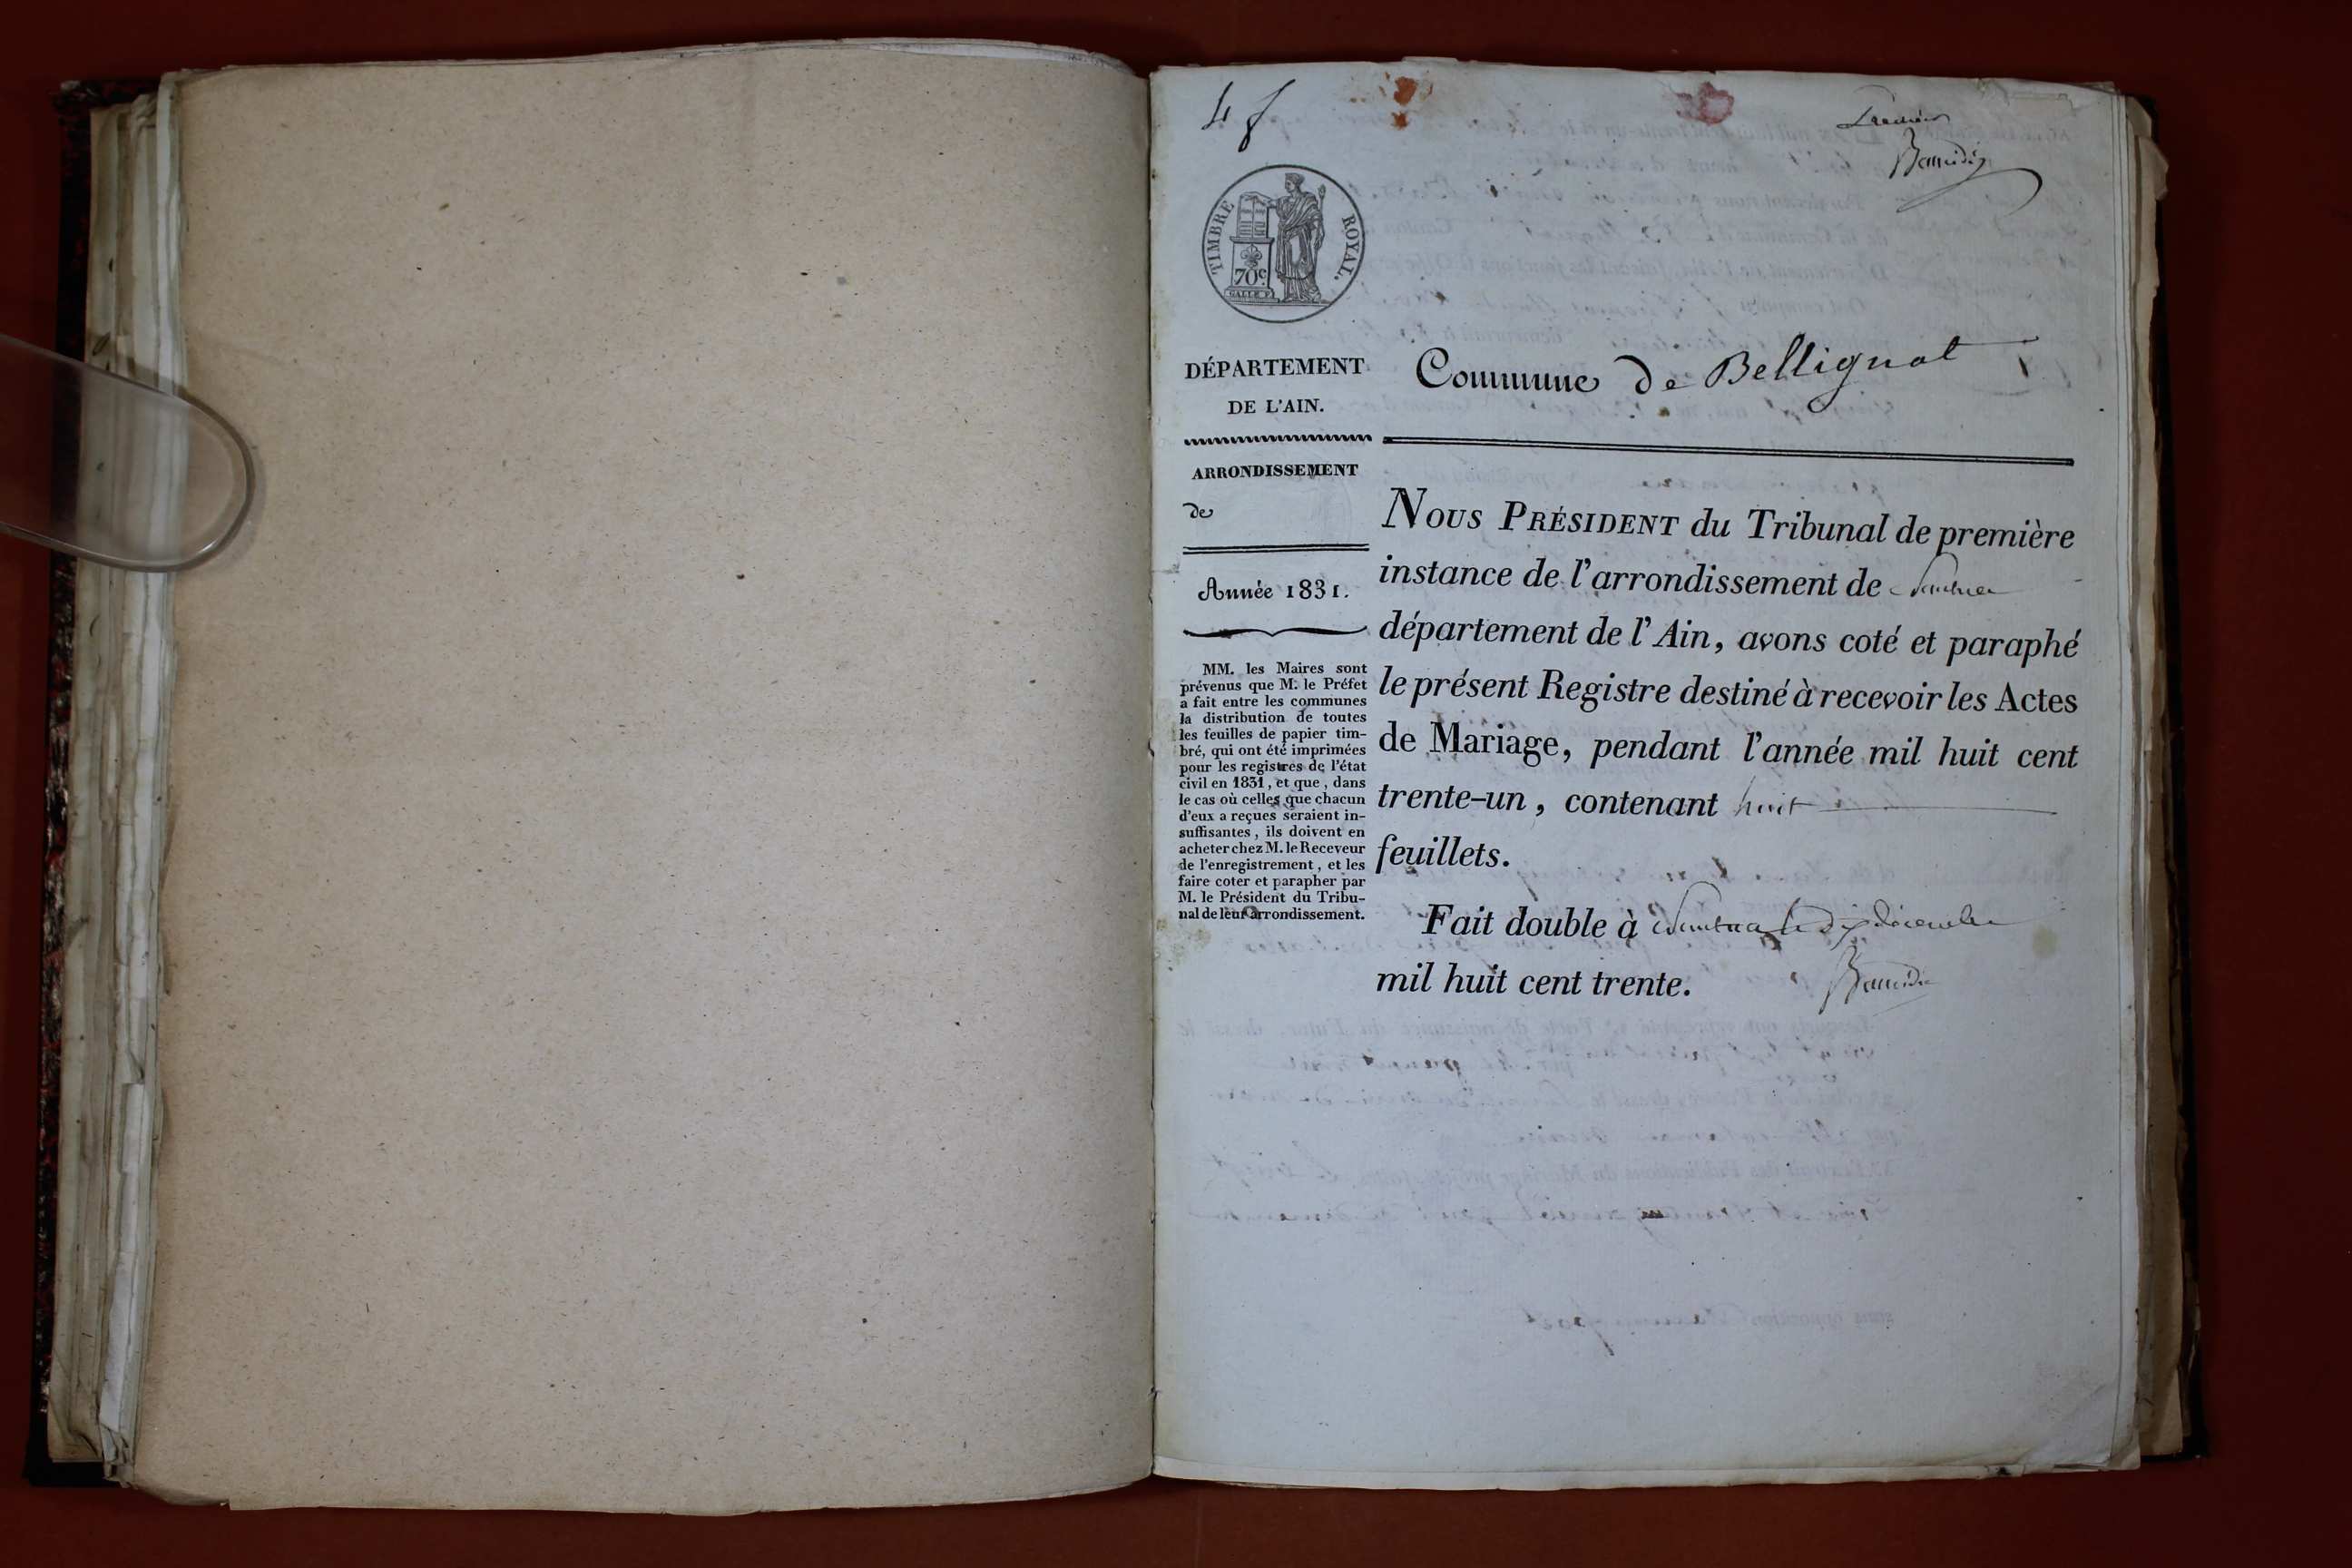 4 f
Premier
TIMBRE ROYAL.
70c.
GALLE F.
DÉPARTEMENT
DE L'AIN.
Commune de Bellignat
ARRONDISSEMENT
de
Année 1831.
MM. les Maires sont
prévenus que M. le Préfet
a fait entre les communes
la distribution de toutes
les feuilles de papier tim-
bré, qui ont été imprimées
pour les registres de l'état
civil en 1831, et que, dans
le cas où celles que chacun
d'eux a reçues seraient in-
suffisantes, ils doivent en
acheter chez M. le Receveur
de l'enregistrement, et les
faire coter et parapher par
M. le Président du Tribu-
nal de leur arrondissement.
NOUS PRÉSIDENT du Tribunal de première
instance de l'arrondissement de Nantua
département de l'Ain, avons coté et paraphé
le présent Registre destiné à recevoir les Actes
de Mariage, pendant l'année mil huit cent
trente-un, contenant huit
feuillets.
Fait double à Nantua le dix décembre
mil huit cent trente.